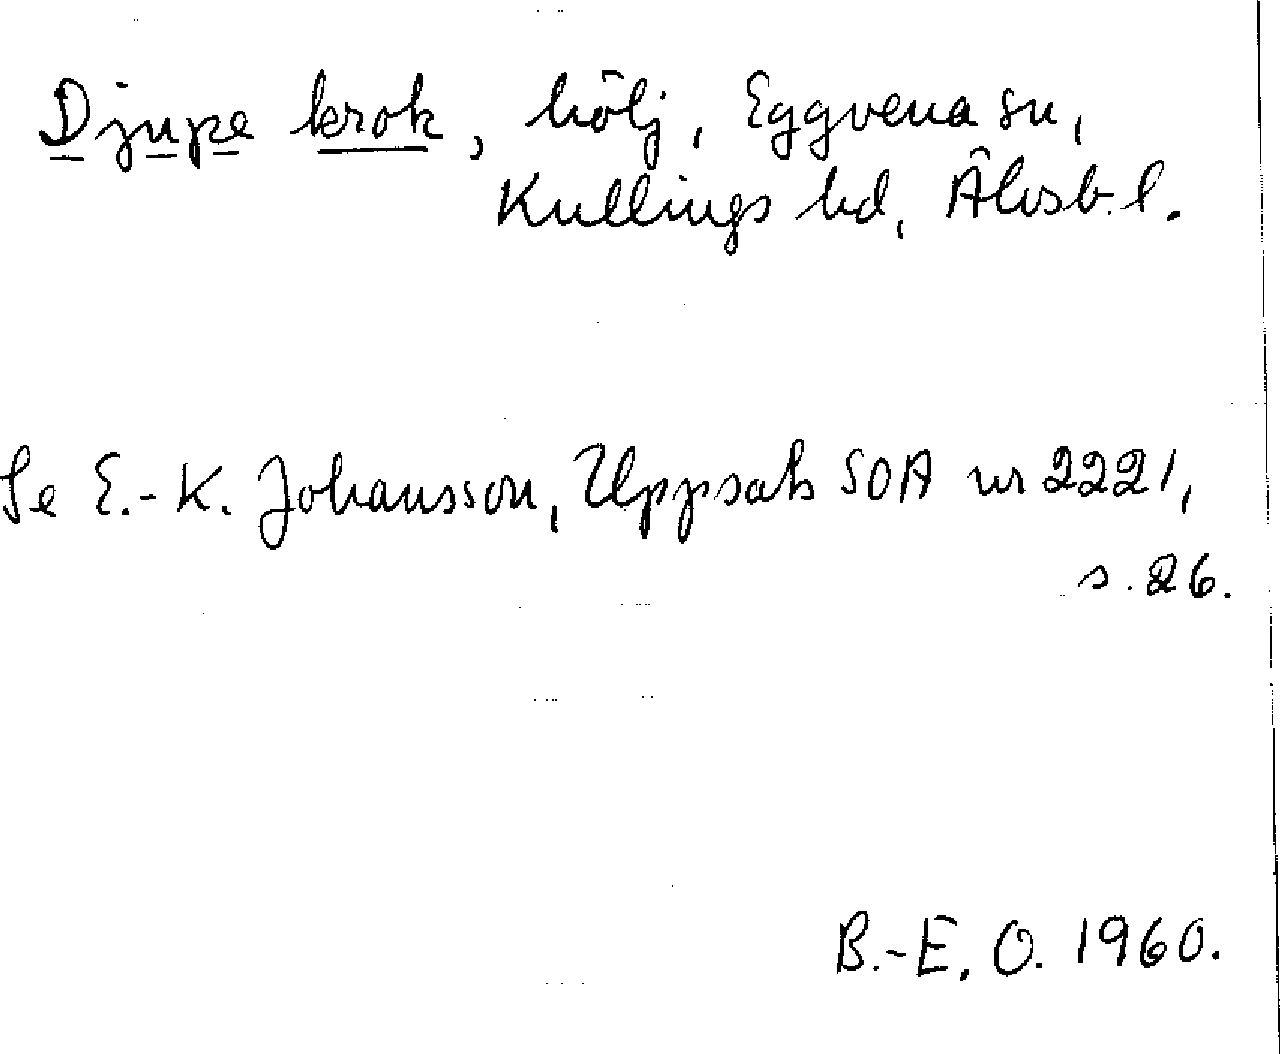 Djupe krok, hölj, Eggvena sn,
Kullings hd, Älvsb. l.
Se E.-K. Johansson, Uppsats SOA nr 2221,
s. 26.
B.-E. O. 1960.